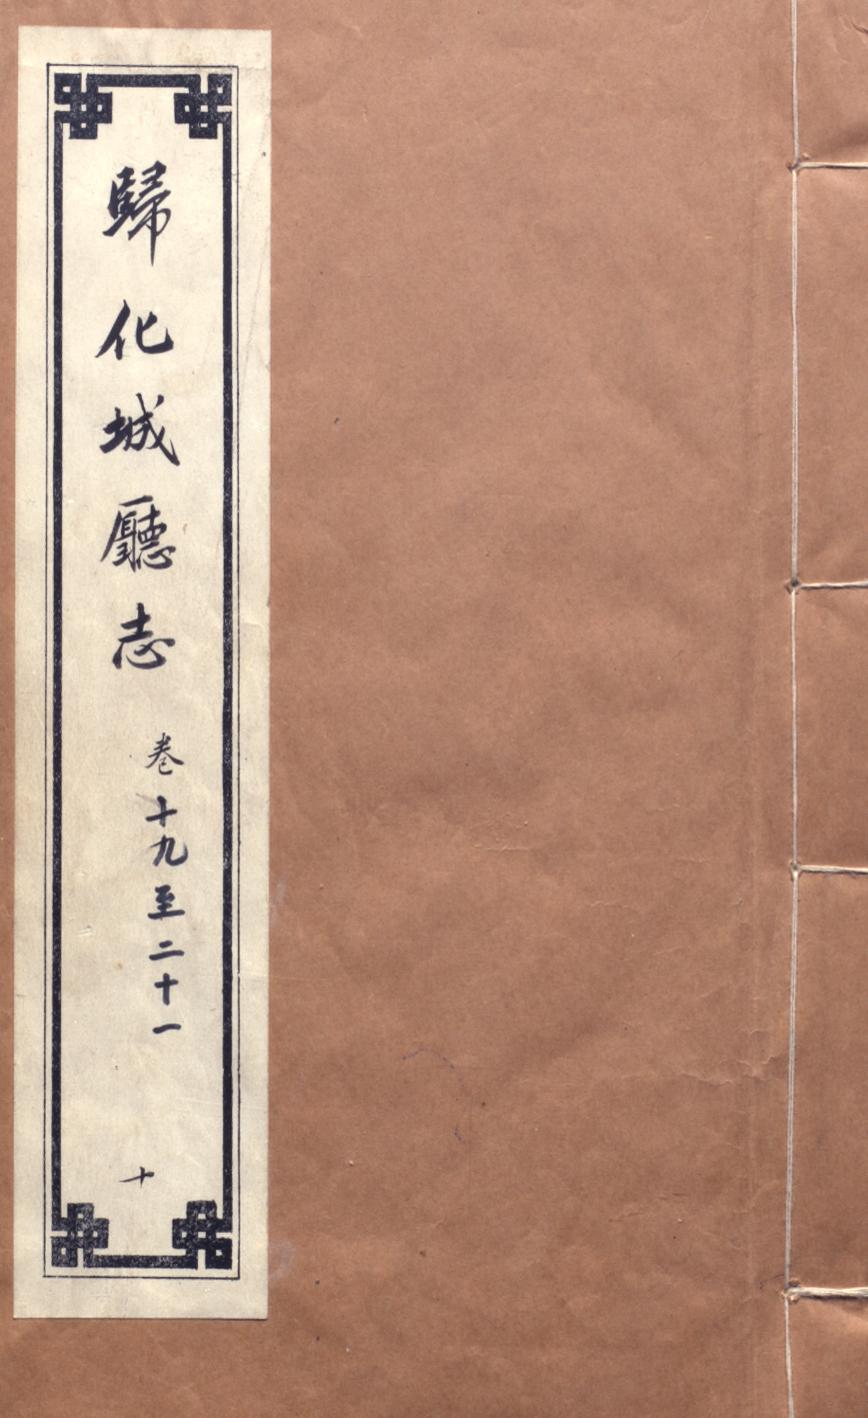 歸化城廳志
卷十九至二十一
十